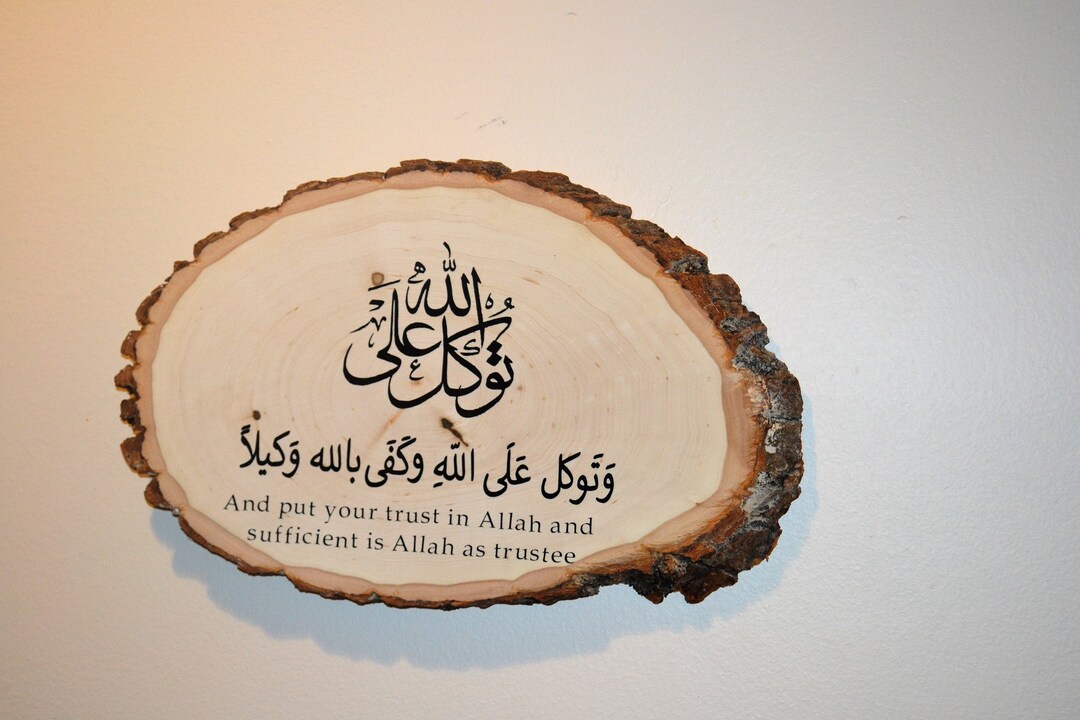 توكل على الله
وَتَوكل عَلَى اللّهِ وكَفَى بالله وَكيلاً
And put your trust in Allah and
sufficient is Allah as trustee